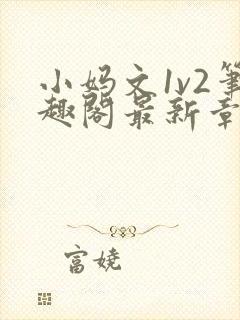 小妈文1v2笔
趣阁最新章
富娆